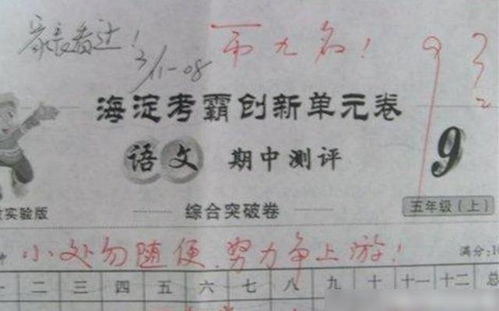 家长看过! 第九名!
2/11-08
海淀考霸创新单元卷 93
语文 期中测评 9
实验版 综合突破卷 五年级(上)
小处勿随便,努力争上游! 满分:1
二 三 四 五 六 七 八 九 十 十一 十二 总